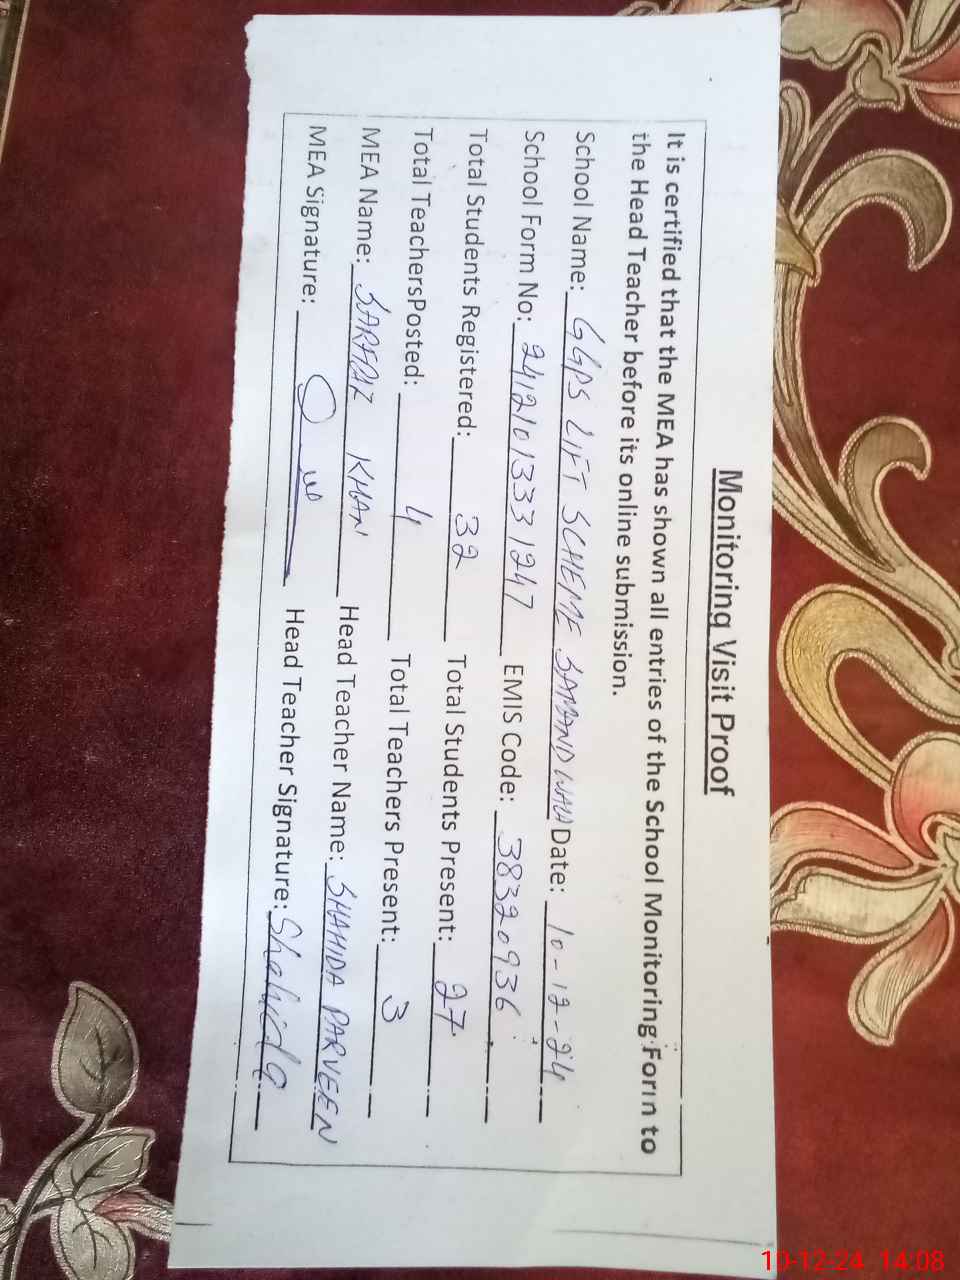 Monitoring Visit Proof
It is certified that the MEA has shown all entries of the School Monitoring Form to
the Head Teacher before its online submission.
School Name: GGPS LIFT SCHEME SAMAND WALA Date: 10-12-24
School Form No: 24121013331247 EMIS Code: 38320936
Total Students Registered: 32 Total Students Present: 27
Total TeachersPosted: 4 Total Teachers Present: 3
MEA Name: SARFRAZ KHAN Head Teacher Name: SHAHIDA PARVEEN
MEA Signature: Head Teacher Signature: Shahida
10-12-24 14:08